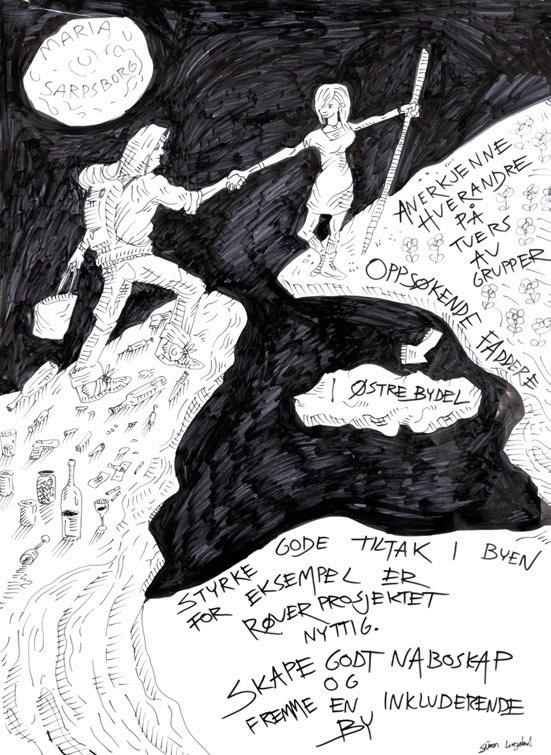 MARIA
SARPSBORG
ANERKJENNE
HVERANDRE
PÅ
TVERS
AV
GRUPPER
OPPSØKENDE FADDERE
I ØSTRE BYDEL
STYRKE GODE TILTAK I BYEN
FOR EKSEMPEL ER
RØVERPROSJEKTET
NYTTIG.
SKAPE GODT NABOSKAP
OG
FREMME EN INKLUDERENDE
BY